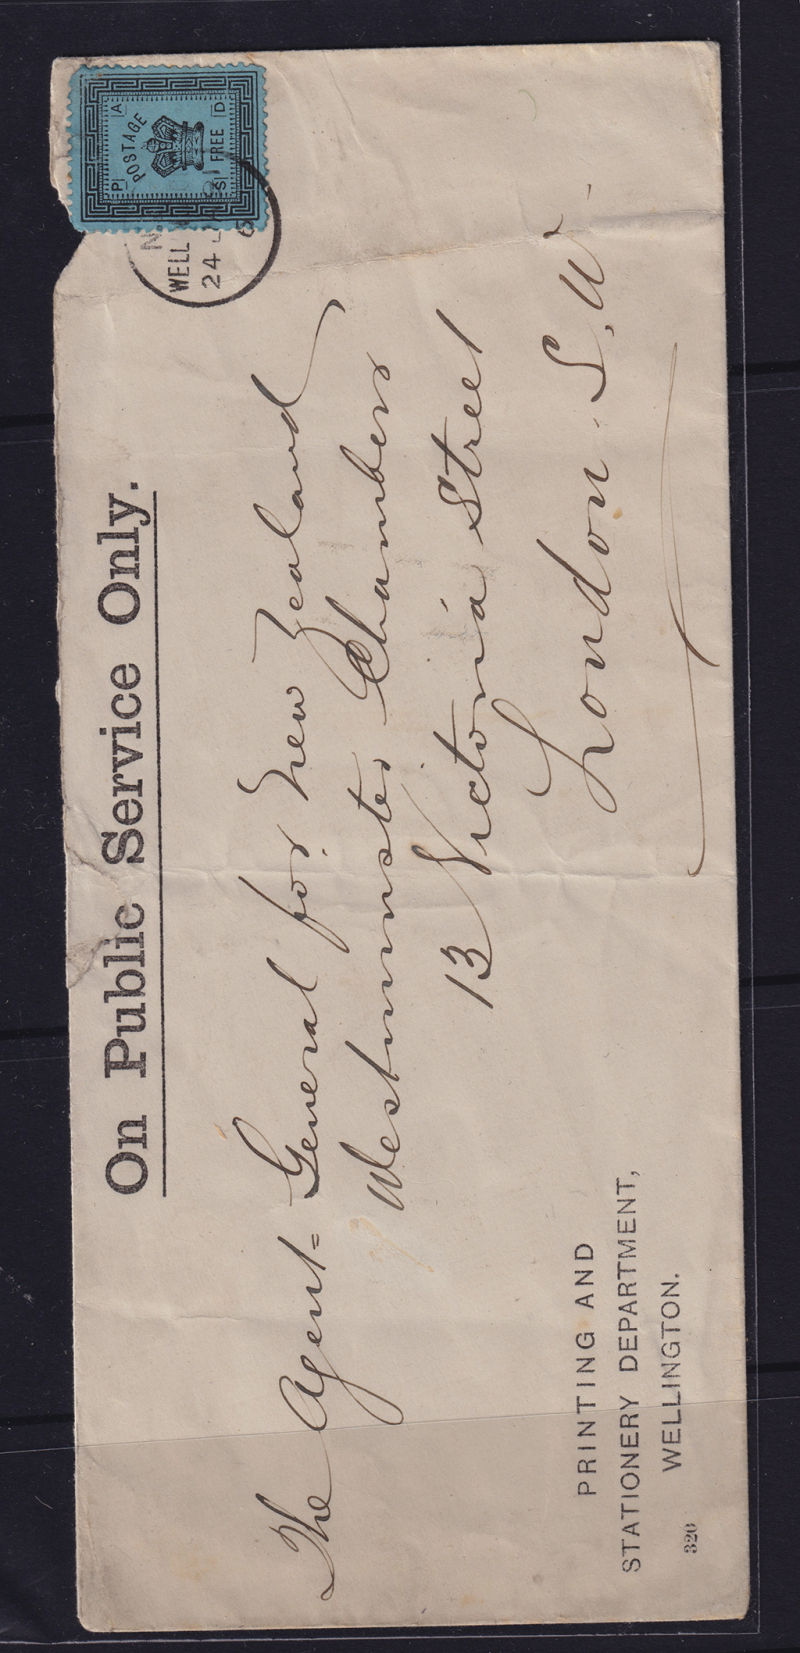 On Public Service Only.
P A
POSTAGE
FREE
S D
WELL
24
The Agent=General for New Zealand
Westminster Chambers
13 Victoria Street
London. S.W.
PRINTING AND
STATIONERY DEPARTMENT,
WELLINGTON.
320